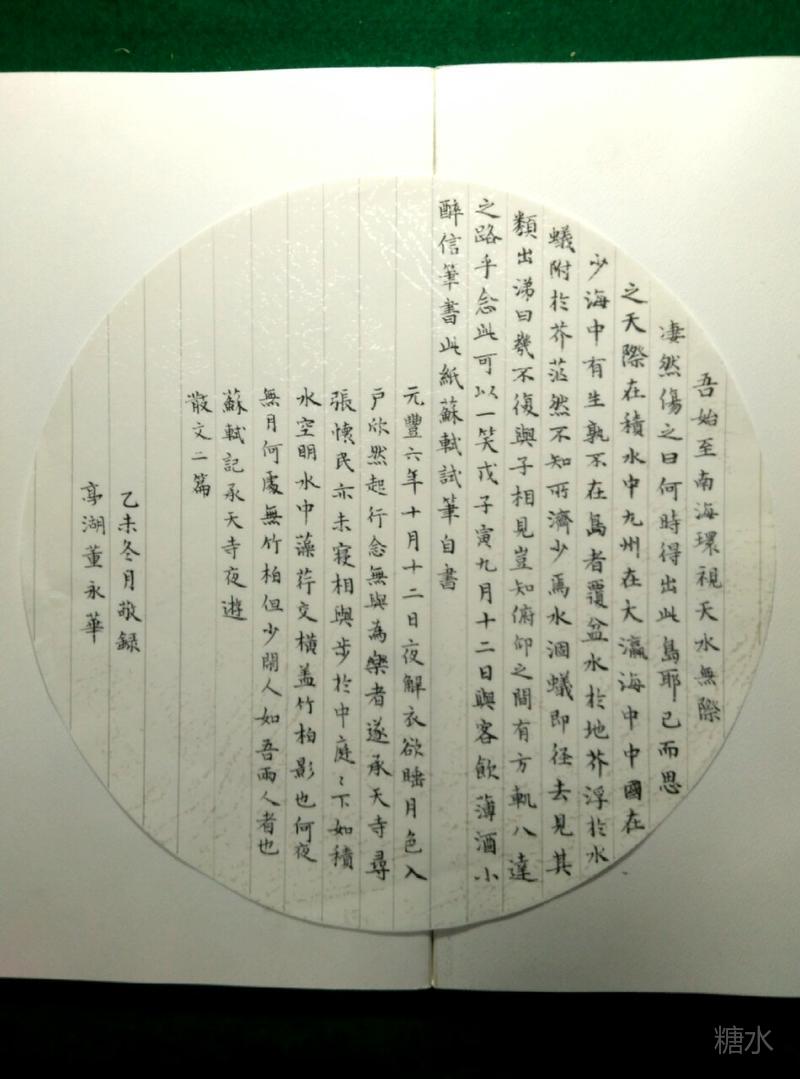 吾始至南海環視天水無際
淒然傷之曰何時得出此島耶已而思
之天際在積水中九州在大瀛海中中國在
少海中有生孰不在島者覆盆水於地芥浮於水
蟻附於芥茫然不知所濟少焉水涸蟻即径去見其
類出涕曰幾不復與子相見豈知俯仰之間有方軌八達
之路乎念此可以一笑戊子寅九月十二日與客飲薄酒小
醉信筆書此紙蘇軾試筆自書
元豐六年十月十二日夜解衣欲睡月色入
户欣然起行念無與為樂者遂承天寺尋
張懷民亦未寢相與步於中庭〻下如積
水空明水中藻荇交橫盖竹柏影也何夜
無月何處無竹柏但少閑人如吾兩人者也
蘇軾記承天寺夜遊
散文二篇
乙未冬月敬録
亭湖董永華
糖水